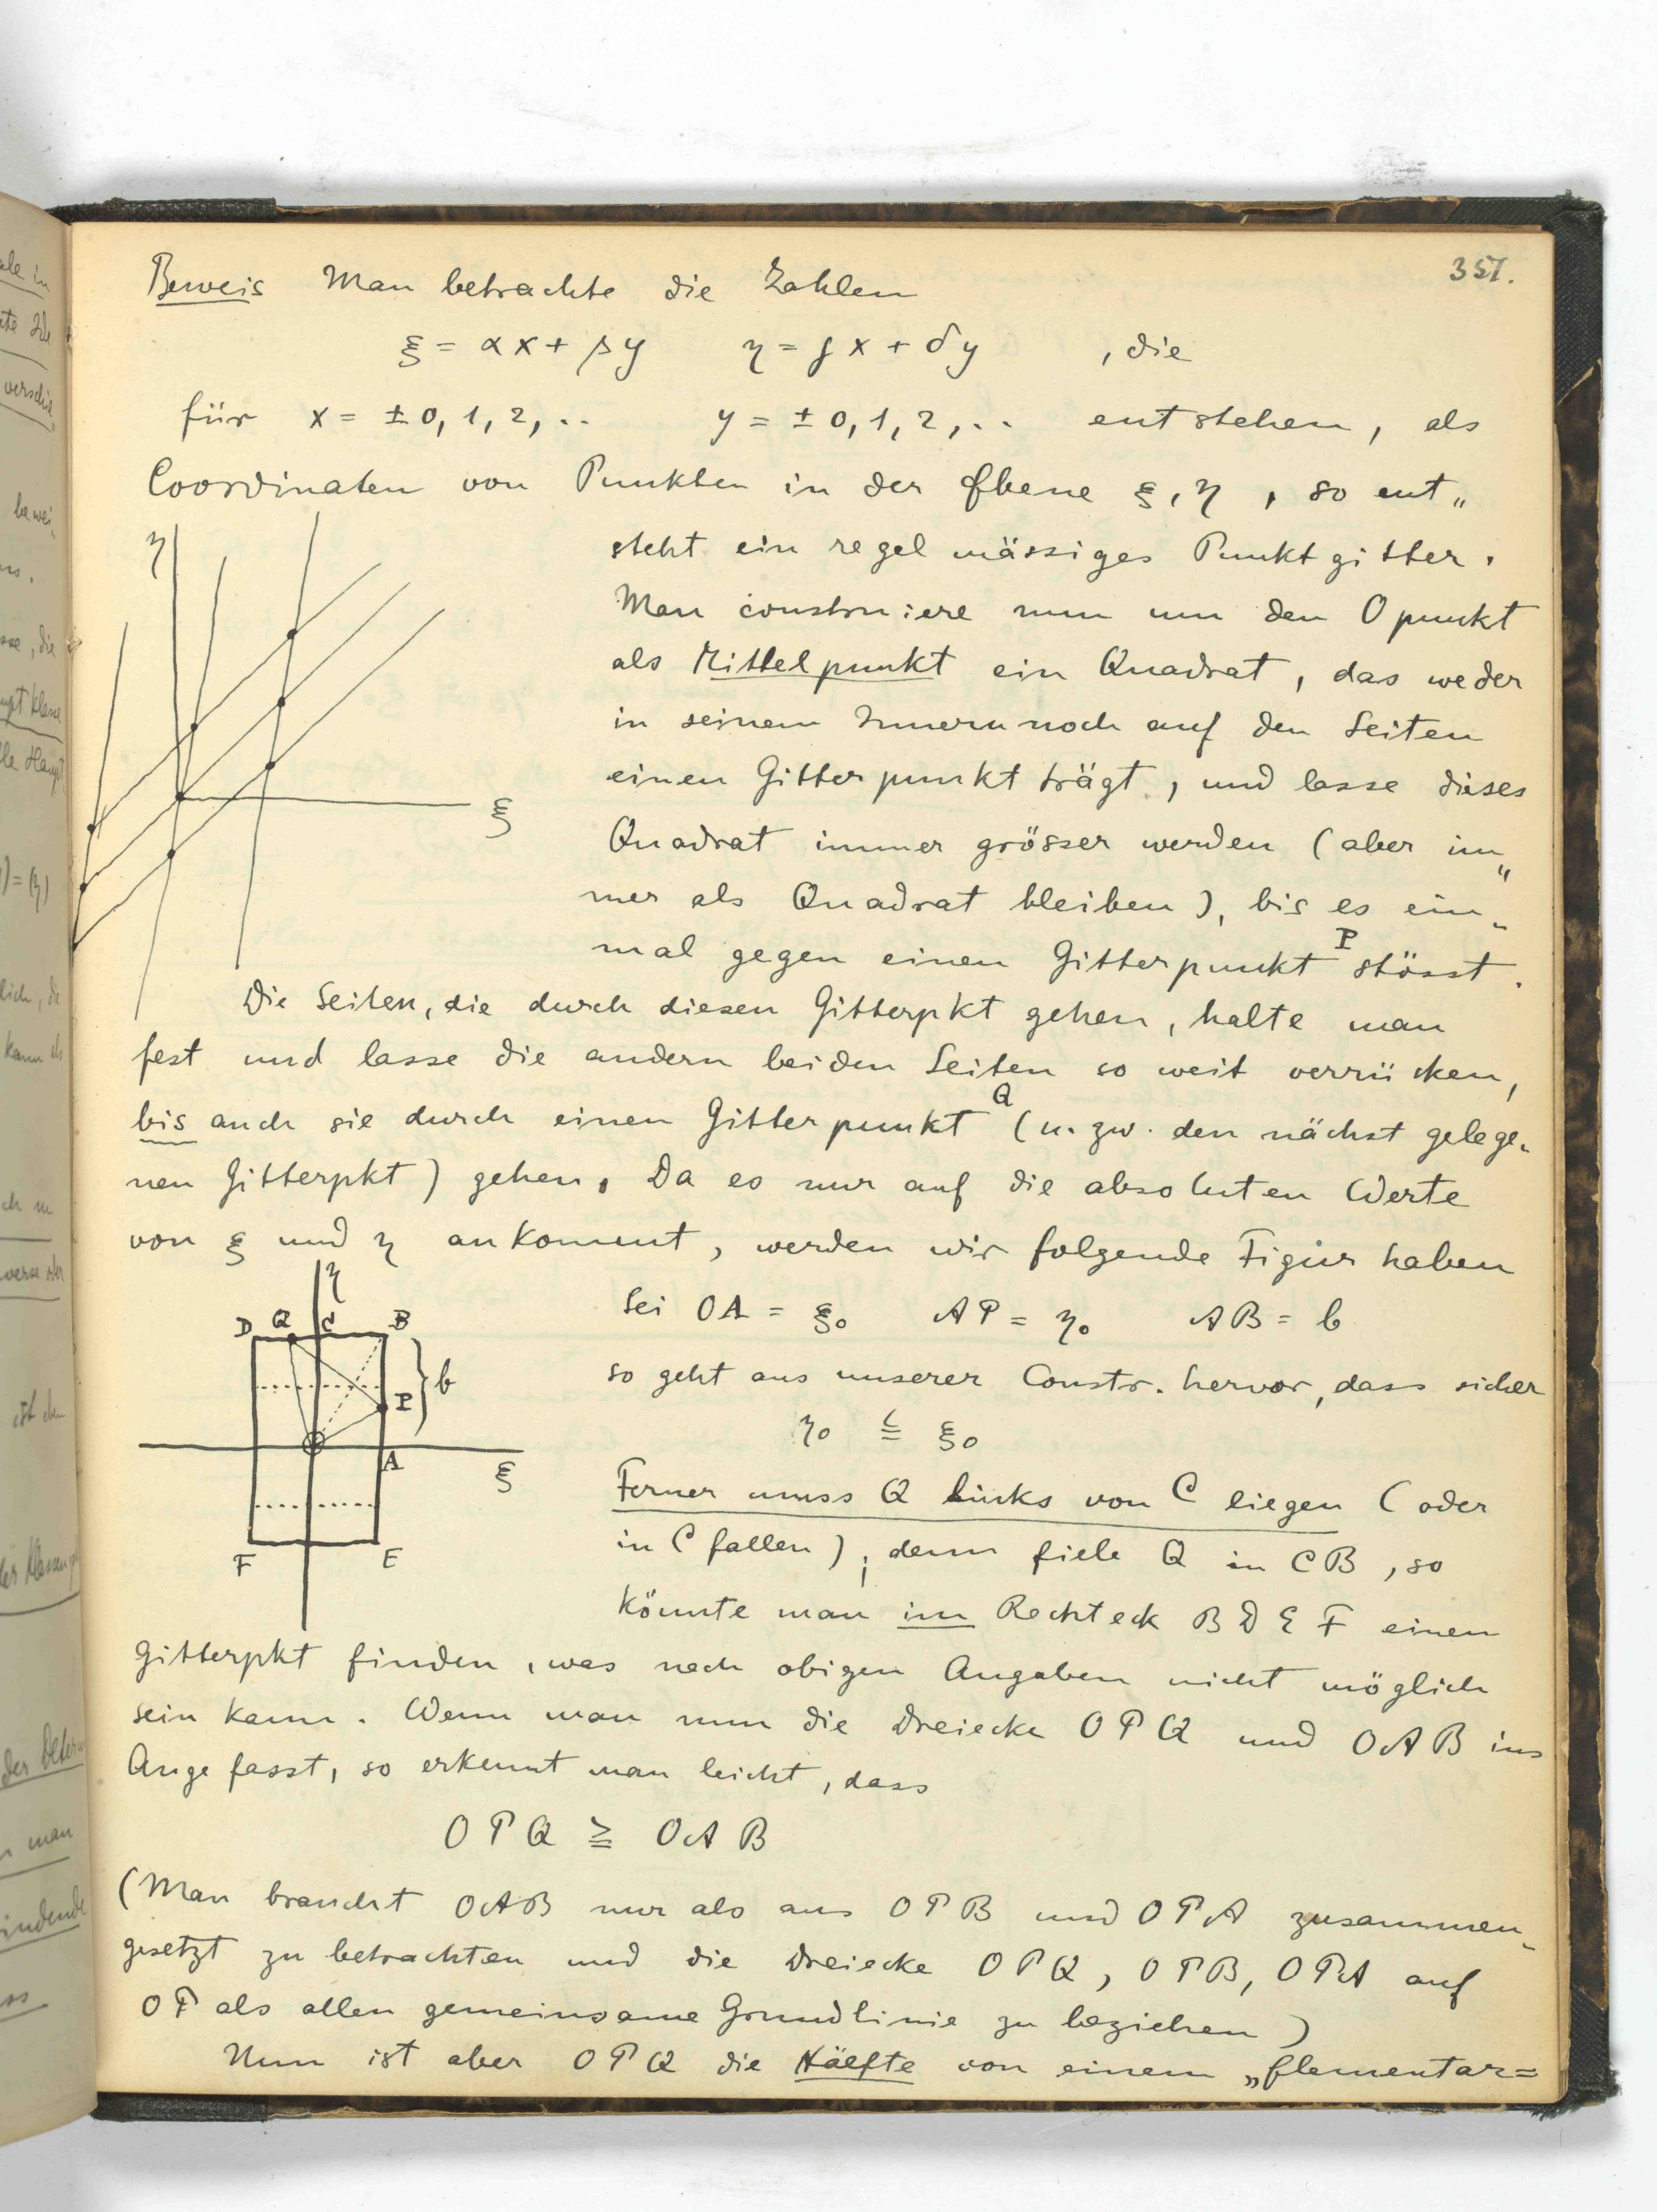 351.
Beweis Man betrachte die Zahlen
ξ = αx + βy η = γx + δy , die
für x = ± 0, 1, 2, .. y = ± 0, 1, 2, .. entstehen, als
Coordinaten von Punkten in der Ebene ξ, η , so ent„
steht ein regelmässiges Punktgitter.
Man construiere nun um den O punkt
als Mittelpunkt ein Quadrat, das weder
in seinem Innern noch auf den Seiten
einen Gitterpunkt trägt, und lasse dieses
Quadrat immer grösser werden (aber im„
mer als Quadrat bleiben), bis es ein„
mal gegen einen Gitterpunkt P stösst.
Die Seiten, die durch diesen Gitterpkt gehen, halte man
fest und lasse die andern beiden Seiten so weit verrücken,
bis auch sie durch einen Gitterpunkt Q (u. zw. den nächst gelege„
nen Gitterpkt) gehen. Da es nur auf die absoluten Werte
von ξ und η ankommt, werden wir folgende Figur haben
Sei OA = ξ₀ AP = η₀ AB = b
so geht aus unserer Constr. hervor, dass sicher
η₀ ≦ ξ₀
Ferner muss Q links von C liegen (oder
in C fallen), denn fiele Q in CB, so
könnte man im Rechteck B D E F einen
Gitterpkt finden, was nach obigen Angaben nicht möglich
sein kann. Wenn man nun die Dreiecke OPQ und OAB ins
Auge fasst, so erkennt man leicht, dass
O P Q ≧ O A B
(Man braucht OAB nur als aus OPB und OPA zusammen„
gesetzt zu betrachten und die Dreiecke OPQ, OPB, OPA auf
OP als allen gemeinsame Grundlinie zu beziehen)
Nun ist aber OPQ die Hälfte von einem „Elementar=
η
ξ
η
D Q C B
b
P
A
ξ
F E